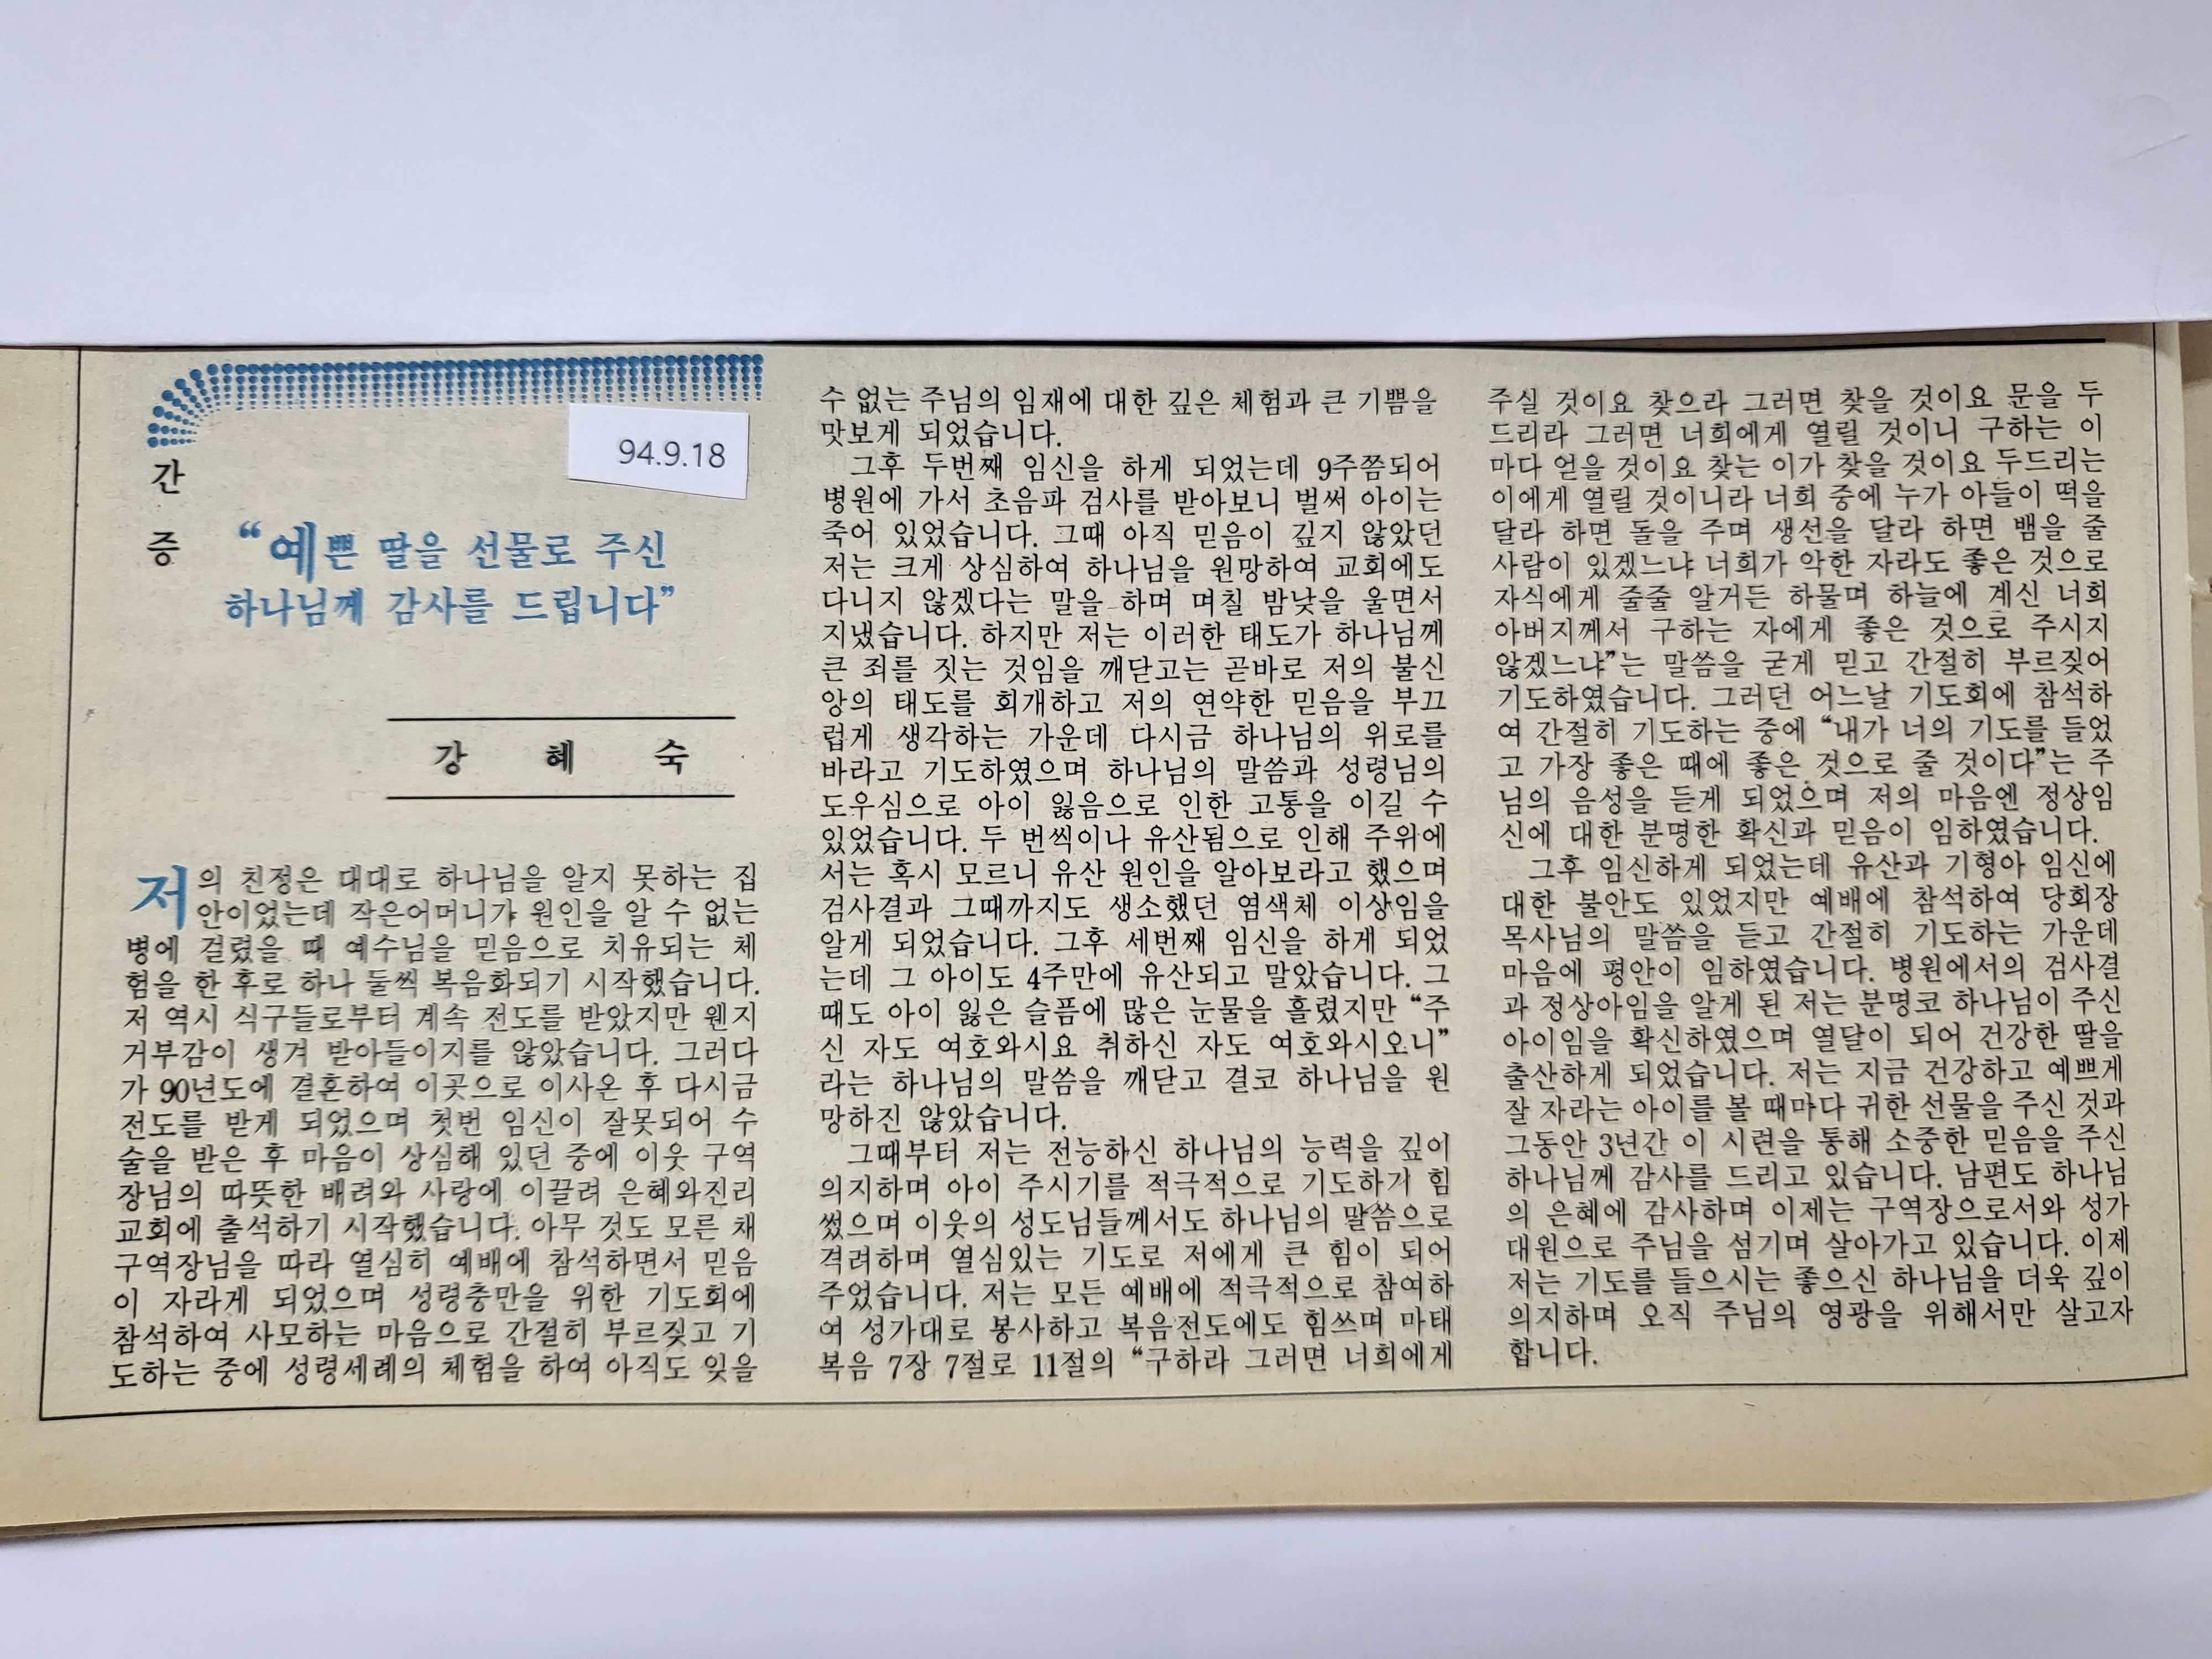 간
증
94.9.18
“예쁜 딸을 선물로 주신
하나님께 감사를 드립니다”
강 혜 숙
저의 친정은 대대로 하나님을 알지 못하는 집
안이었는데 작은어머니가 원인을 알 수 없는
병에 걸렸을 때 예수님을 믿음으로 치유되는 체
험을 한 후로 하나 둘씩 복음화되기 시작했습니다.
저 역시 식구들로부터 계속 전도를 받았지만 웬지
거부감이 생겨 받아들이지를 않았습니다. 그러다
가 90년도에 결혼하여 이곳으로 이사온 후 다시금
전도를 받게 되었으며 첫번 임신이 잘못되어 수
술을 받은 후 마음이 상심해 있던 중에 이웃 구역
장님의 따뜻한 배려와 사랑에 이끌려 은혜와진리
교회에 출석하기 시작했습니다. 아무 것도 모른 채
구역장님을 따라 열심히 예배에 참석하면서 믿음
이 자라게 되었으며 성령충만을 위한 기도회에
참석하여 사모하는 마음으로 간절히 부르짖고 기
도하는 중에 성령세례의 체험을 하여 아직도 잊을
수 없는 주님의 임재에 대한 깊은 체험과 큰 기쁨을
맛보게 되었습니다.
그후 두번째 임신을 하게 되었는데 9주쯤되어
병원에 가서 초음파 검사를 받아보니 벌써 아이는
죽어 있었습니다. 그때 아직 믿음이 깊지 않았던
저는 크게 상심하여 하나님을 원망하여 교회에도
다니지 않겠다는 말을 하며 며칠 밤낮을 울면서
지냈습니다. 하지만 저는 이러한 태도가 하나님께
큰 죄를 짓는 것임을 깨닫고는 곧바로 저의 불신
앙의 태도를 회개하고 저의 연약한 믿음을 부끄
럽게 생각하는 가운데 다시금 하나님의 위로를
바라고 기도하였으며 하나님의 말씀과 성령님의
도우심으로 아이 잃음으로 인한 고통을 이길 수
있었습니다. 두 번씩이나 유산됨으로 인해 주위에
서는 혹시 모르니 유산 원인을 알아보라고 했으며
검사결과 그때까지도 생소했던 염색체 이상임을
알게 되었습니다. 그후 세번째 임신을 하게 되었
는데 그 아이도 4주만에 유산되고 말았습니다. 그
때도 아이 잃은 슬픔에 많은 눈물을 흘렸지만 “주
신 자도 여호와시요 취하신 자도 여호와시오니”
라는 하나님의 말씀을 깨닫고 결코 하나님을 원
망하진 않았습니다.
그때부터 저는 전능하신 하나님의 능력을 깊이
의지하며 아이 주시기를 적극적으로 기도하기 힘
썼으며 이웃의 성도님들께서도 하나님의 말씀으로
격려하며 열심있는 기도로 저에게 큰 힘이 되어
주었습니다. 저는 모든 예배에 적극적으로 참여하
여 성가대로 봉사하고 복음전도에도 힘쓰며 마태
복음 7장 7절로 11절의 “구하라 그러면 너희에게
주실 것이요 찾으라 그러면 찾을 것이요 문을 두
드리라 그러면 너희에게 열릴 것이니 구하는 이
마다 얻을 것이요 찾는 이가 찾을 것이요 두드리는
이에게 열릴 것이니라 너희 중에 누가 아들이 떡을
달라 하면 돌을 주며 생선을 달라 하면 뱀을 줄
사람이 있겠느냐 너희가 악한 자라도 좋은 것으로
자식에게 줄줄 알거든 하물며 하늘에 계신 너희
아버지께서 구하는 자에게 좋은 것으로 주시지
않겠느냐”는 말씀을 굳게 믿고 간절히 부르짖어
기도하였습니다. 그러던 어느날 기도회에 참석하
여 간절히 기도하는 중에 “내가 너의 기도를 들었
고 가장 좋은 때에 좋은 것으로 줄 것이다”는 주
님의 음성을 듣게 되었으며 저의 마음엔 정상임
신에 대한 분명한 확신과 믿음이 임하였습니다.
그후 임신하게 되었는데 유산과 기형아 임신에
대한 불안도 있었지만 예배에 참석하여 당회장
목사님의 말씀을 듣고 간절히 기도하는 가운데
마음에 평안이 임하였습니다. 병원에서의 검사결
과 정상아임을 알게 된 저는 분명코 하나님이 주신
아이임을 확신하였으며 열달이 되어 건강한 딸을
출산하게 되었습니다. 저는 지금 건강하고 예쁘게
잘 자라는 아이를 볼 때마다 귀한 선물을 주신 것과
그동안 3년간 이 시련을 통해 소중한 믿음을 주신
하나님께 감사를 드리고 있습니다. 남편도 하나님
의 은혜에 감사하며 이제는 구역장으로서와 성가
대원으로 주님을 섬기며 살아가고 있습니다. 이제
저는 기도를 들으시는 좋으신 하나님을 더욱 깊이
의지하며 오직 주님의 영광을 위해서만 살고자
합니다.